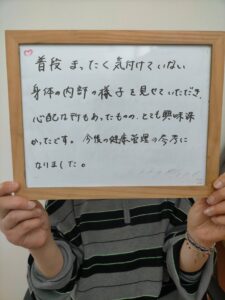 普段 まったく気付けていない
身体の内部の様子を見せていただき、
心配な所もあったものの、とても興味深
かったです。今後の健康管理の参考に
なりました。